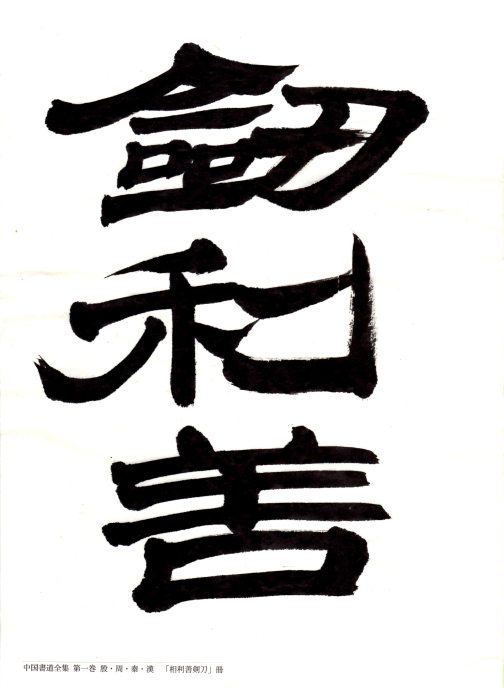 劒利善
中国書道全集 第一巻 殷・周・秦・漢 「相利善剣刀」冊